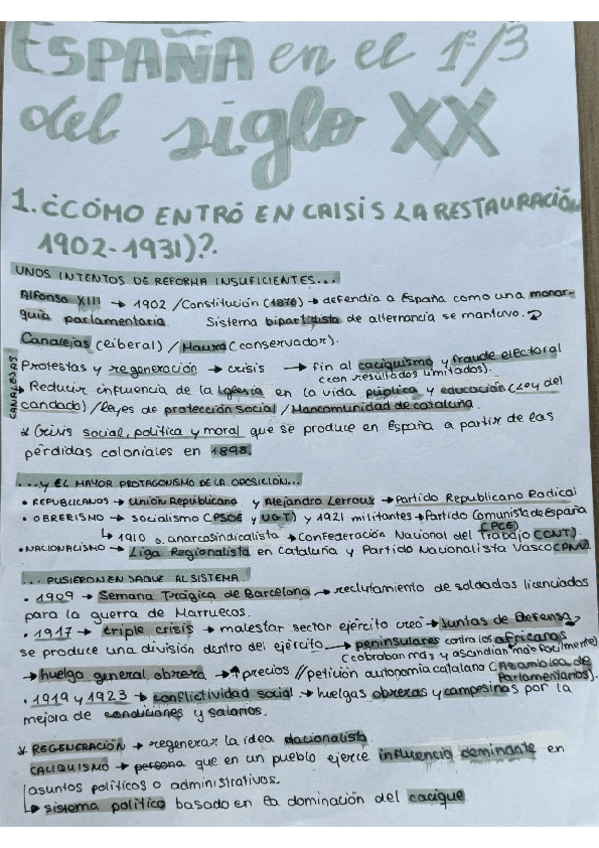 ESPAÑA en el 1º/3
del siglo XX
1. ¿CÓMO ENTRÓ EN CRISIS LA RESTAURACIÓN
1902-1931)?.
UNOS INTENTOS DE REFORMA INSUFICIENTES...
Alfonso XIII → 1902 / Constitución (1876) → defendía a España como una monar-
quía parlamentaria. Sistema bipartidista de alternancia se mantuvo.
Canalejas (liberal) / Maura (conservador).
CANALEJAS
Protestas y regeneración → crisis → fin al caciquismo y fraude electoral
(con resultados limitados).
→ Reducir influencia de la Iglesia en la vida pública y educación (Ley del
candado) / leyes de protección social / Mancomunidad de cataluña
* Crisis social, política y moral que se produce en España a partir de las
pérdidas coloniales en 1898.
...Y EL MAYOR PROTAGONISMO DE LA OPOSICIÓN...
• REPUBLICANOS → Unión Republicana y Alejandro Lerroux → Partido Republicano Radical
• OBRERISMO → socialismo (PSOE y UGT) y 1921 militantes → Partido Comunista de España
(PCE)
↳ 1910 s. anarcosindicalista → Confederación Nacional del Trabajo (CNT).
• NACIONALISMO → Liga Regionalista en Cataluña y Partido Nacionalista Vasco (PNV).
... PUSIERON EN JAQUE AL SISTEMA
• 1909 → Semana Trágica de Barcelona → reclutamiento de soldados licenciados
para la guerra de Marruecos.
• 1917 → triple crisis → malestar sector ejército creó → Juntas de Defensa,
se produce una división dentro del ejército → peninsulares contra los africanos
(cobraban más y ascendian más facilmente)
→ huelga general obrera → ↑ precios // petición autonomía catalana (Asamblea de
Parlamentarios).
• 1919 y 1923 → conflictividad social → huelgas obreras y campesinas por la
mejora de condiciones y salarios.
* REGENERACIÓN → regenerar la idea nacionalista
CACIQUISMO → persona que en un pueblo ejerce influencia dominante en
asuntos políticos o administrativos.
↳ sistema político basado en la dominación del cacique